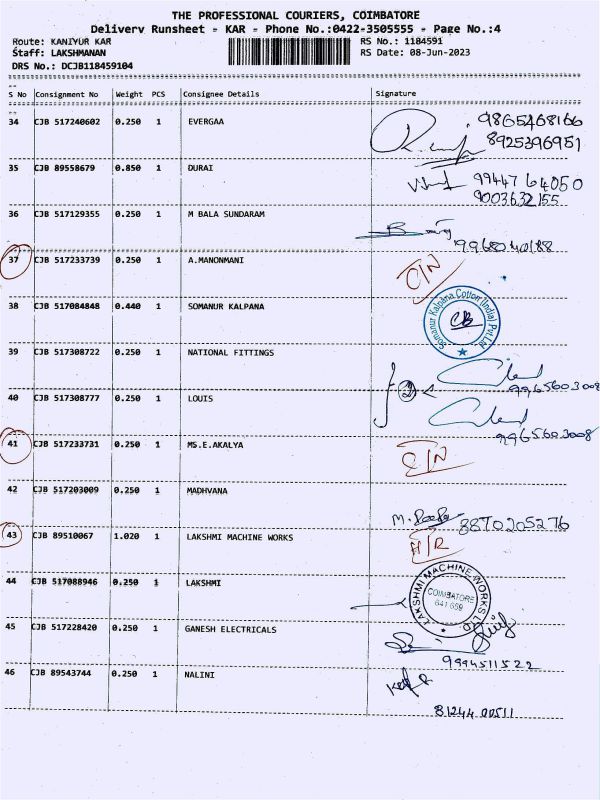 THE PROFESSIONAL COURIERS, COIMBATORE
Delivery Runsheet - KAR - Phone No.:0422-3505555 - Page No.:4
Route: KANIYUR KAR RS No.: 1184591
Staff: LAKSHMANAN RS Date: 08-Jun-2023
DRS No.: DCJB118459104
S No Consignment No Weight PCS Consignee Details Signature
34 CJB 517240602 0.250 1 EVERGAA 9865468166
8925396951
35 CJB 89558679 0.850 1 DURAI 99447 64050
9003632155
36 CJB 517129355 0.250 1 M BALA SUNDARAM
9968040188
37 CJB 517233739 0.250 1 A.MANONMANI
38 CJB 517084848 0.440 1 SOMANUR KALPANA Somanur Kalpana Cotton (India) Pvt Ltd
CB
39 CJB 517308722 0.250 1 NATIONAL FITTINGS
9965603008
40 CJB 517308777 0.250 1 LOUIS 2
9965603008
41 CJB 517233731 0.250 1 MS.E.AKALYA
42 CJB 517203009 0.250 1 MADHVANA 8870205276
43 CJB 89510067 1.020 1 LAKSHMI MACHINE WORKS
44 CJB 517088946 0.250 1 LAKSHMI LAKSHMI MACHINE WORKS LTD
COIMBATORE
641 659
45 CJB 517228420 0.250 1 GANESH ELECTRICALS
9994511522
46 CJB 89543744 0.250 1 NALINI
81244 00511